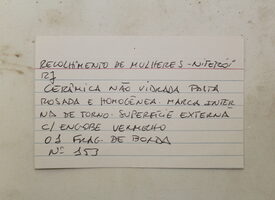 RECOLHIMENTO DE MULHERES - NITERÓI
RJ
CERÂMICA NÃO VIDRADA PASTA
ROSADA E HOMOGÊNEA. MARCA INTER
NA DE TORNO. SUPERFÍCIE EXTERNA
C/ ENGOBE VERMELHO
01 FRAG. DE BORDA
Nº 153